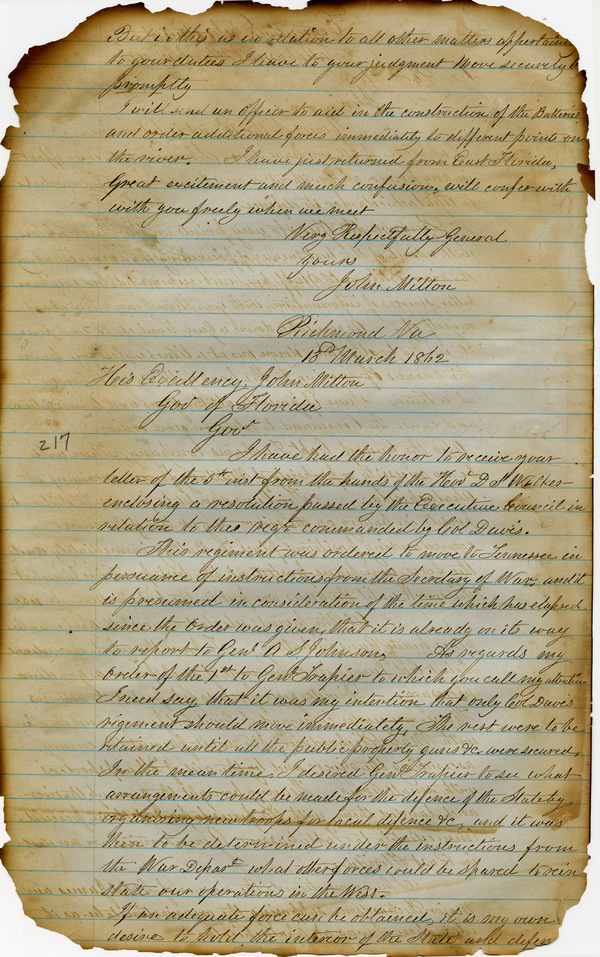 But in this as in relation to all other matters appertain
to your duties I leave to your judgment move securely
promptly
I will send an Officer to aid in the construction of the Batteries
and order additional forces immediately to different points on
the river. I have just returned from East Florida,
Great excitement and much confusion, will confer with
with you freely when we meet
Very Respectfully General
Yours
John Milton
Richmond Va
13th March 1862
His Excellency, John Milton
Gov of Florida
Gov
217
I have had the honor to receive your
letter of the 5th inst from the hands of the Hon D S Walker
enclosing a resolution passed by the Executive Council in
relation to the regt commanded by Col Davis.
This regiment was ordered to move to Tennessee in
persuance of instructions from the Secretary of War, and it
is presumed in consideration of the time which has elapsed
since the order was given, that it is already on its way
to report to Genl A S Johnson. As regards my
order of the 1st to Genl Trapier to which you call my attention
I need say that it was my intention that only Col Davis
regiment should move immediately. The rest were to be
retained until all the public property guns &c were secured.
In the mean time, I desired Genl Trapier to see what
arrangements could be made for the defence of the State by
organising new troops for local defence &c, and it was
then to be determined under the instructions from
the War Depart what other forces could be spared to rein
state our operations in the West.
If an adequate force can be obtained, it is my own
desire to hold the interior of the State and defen